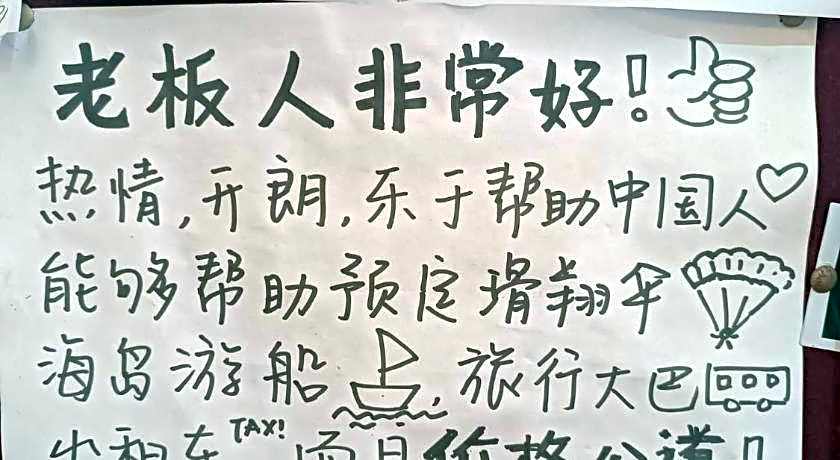 老板人非常好!
热情,开朗,乐于帮助中国人
能够帮助预定滑翔伞
海岛游船,旅行大巴
出租车TAXI!而且价格公道!